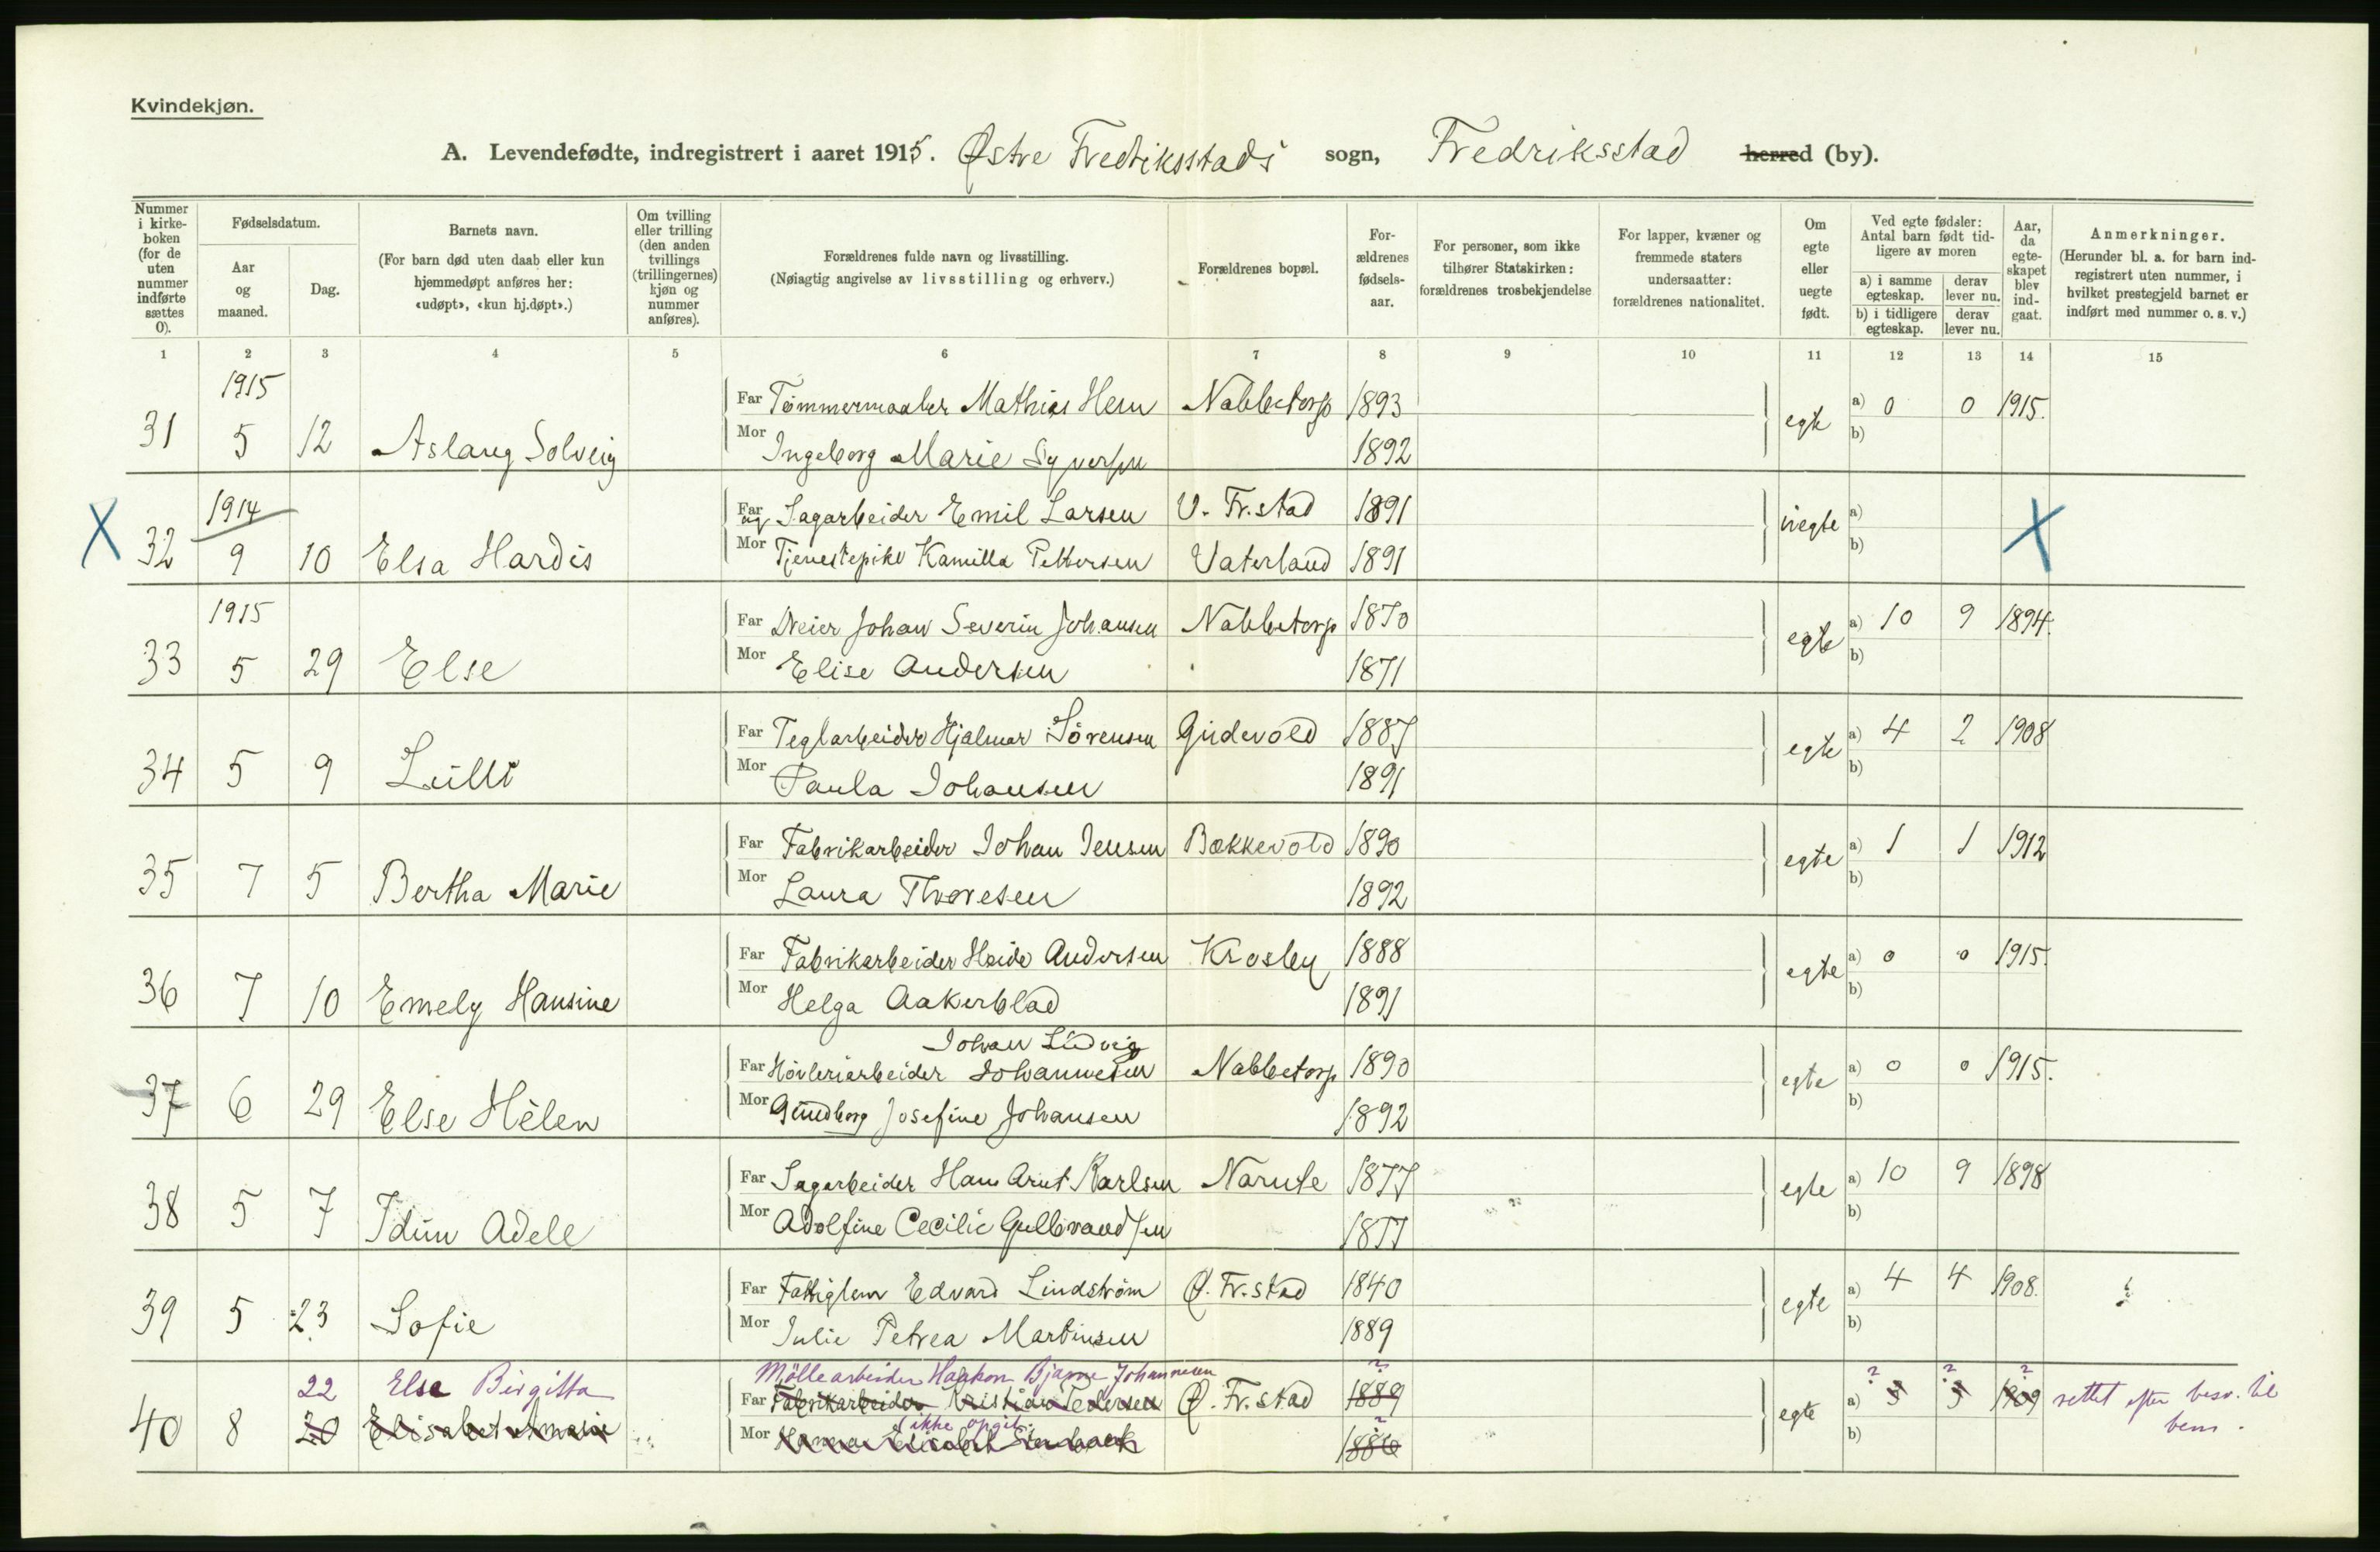 Kvindekjøn.
A. Levendefødte, indregistrert i aaret 1915. Østre Fredriksstads sogn, Fredriksstad herred (by).
Nummer i kirke-boken (for de uten nummer indførte sættes 0).
Fødselsdatum.
Aar og maaned.
Dag.
Barnets navn.
(For barn død uten daab eller kun hjemmedøpt anføres her: «udøpt», «kun hj.døpt».)
Om tvilling eller trilling (den anden tvillings (trillingernes) kjøn og nummer anføres).
Forældrenes fulde navn og livsstilling.
(Nøiagtig angivelse av livsstilling og erhverv.)
Forældrenes bopæl.
For-ældrenes fødsels-aar.
For personer, som ikke tilhører Statskirken: forældrenes trosbekjendelse
For lapper, kvæner og fremmede staters undersaatter: forældrenes nationalitet.
Om egte eller uegte født.
Ved egte fødsler: Antal barn født tid-ligere av moren
a) i samme egteskap.
derav lever nu.
b) i tidligere egteskap.
derav lever nu.
Aar, da egte-skapet blev ind-gaat.
Anmerkninger.
(Herunder bl. a. for barn ind-registrert uten nummer, i hvilket prestegjeld barnet er indført med nummer o. s. v.)
1 2 3 4 5 6 7 8 9 10 11 12 13 14 15
1915
Far Tømmermaaler Mathias Hem Nabbetorp 1893 a) 0 0 1915.
31 5 12 Aslaug Solveig egte b)
Mor Ingeborg Marie Syversen 1892
1914
Far og Sagarbeider Emil Larsen V. Fr.stad 1891 a)
X 32 9 10 Elsa Hardis uegte b) X
Mor Tjenestepike Kamilla Pettersen Vaterland 1891
1915
Far Dreier Johan Severin Johansen Nabbetorp 1870 a) 10 9 1894.
33 5 29 Else egte b)
Mor Elise Andersen 1871
Far Teglarbeider Hjalmar Sørensen Gudevold 1887 a) 4 2 1908
34 5 9 Lulli egte b)
Mor Paula Johansen 1891
Far Fabrikarbeider Johan Jensen Bækkevold 1890 a) 1 1 1912
35 7 5 Bertha Marie egte b)
Mor Laura Thoresen 1892
Far Fabrikarbeider Andersen Krosby 1888 a) 0 0 1915.
36 7 10 Emely Hansine egte b)
Mor Helga Aakerblad 1891
Johan Ludvig
Far Høvleriarbeider Johannesen Nabbetorp 1890 a) 0 0 1915.
37 6 29 Else Hélen egte b)
Mor Gundborg Josefine Johansen 1892
Far Sagarbeider Hans Arnt Karlsen Narute 1877 a) 10 9 1898
38 5 7 Idun Adele egte b)
Mor Adolfine Cecilie Gulbrandsen 1877
Far Fattiglem Edvard Lindstrøm Ø. Fr.stad 1840 a) 4 4 1908.
39 5 23 Sofie egte b)
Mor Julie Petrea Martinsen 1889
Møllearbeider Haakon Bjarne Johannesen ? ? ? ?
22 Else Birgitta
Far Fabrikarbeider Kristian Pedersen Ø. Fr.stad 1889 a) 1909 rettet efter besv. til
40 8 20 Elisabet Amalie egte b) bem.
ikke opgit. ?
Mor Elisabet 1886